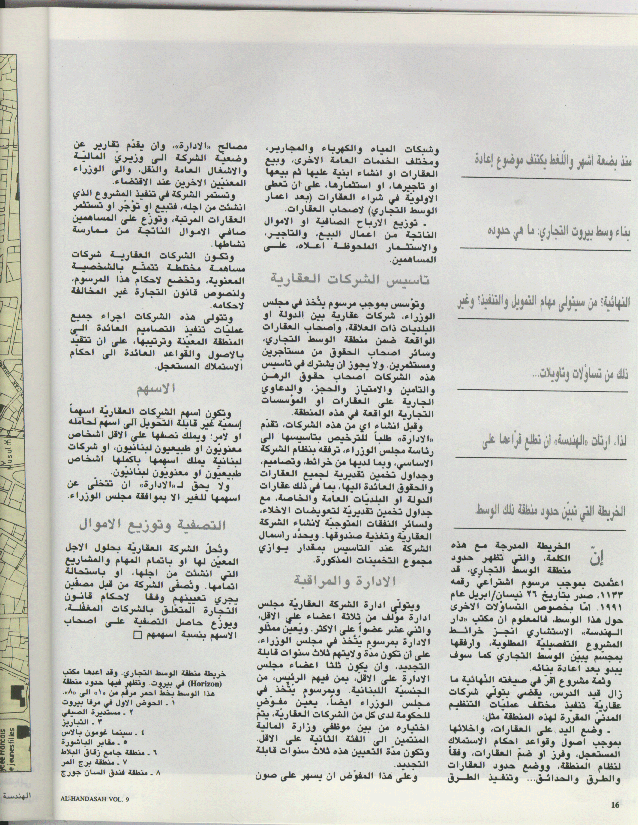 منذ بضعة اشهر واللّغط يكتنف موضوع إعادة
بناء وسط بيروت التجاري: ما هي حدوده
النهائية؟ من سيتولى مهام التمويل والتنفيذ؟ وغير
ذلك من تساؤلات وتاويلات...
لذا. ارتات «الهندسة» ان تطلع قرّاءها على
الخريطة التي تبيّن حدود منطقة ذلك الوسط
إنّ الخريطة المدرجة مع هذه
الكلمة، والتي تظهر حدود
منطقة الوسط التجاري، قد
اعتمدت بموجب مرسوم اشتراعي رقمه
١١٣٣، صدر بتاريخ ٢٦ نيسان/ابريل عام
١٩٩١. امّا بخصوص التساؤلات الاخرى
حول هذا الوسط، فالمعلوم ان مكتب «دار
الهندسة» الاستشاري انجز خرائط
المشروع التفصيليّة المطلوبة، وارفقها
بمجسم يبيّن الوسط التجاري كما سوف
يبدو بعد اعادة بنائه.
وثمة مشروع اقرّ في صيغته النّهائية ما
زال قيد الدرس، يقضي بتولّي شركات
عقاريّة تنفيذ مختلف عمليّات التنظيم
المدني المقررة لهذه المنطقة مثل:
ـ وضع اليد على العقارات، واخلائها
بموجب أصول وقواعد احكام الاستملاك
المستعجل، وفرز او ضمّ العقارات، وفقاً
لنظام المنطقة، ووضع حدود العقارات
والطرق والحدائق... وتنفيذ الطرق
وشبكات المياه والكهرباء والمجارير،
ومختلف الخدمات العامة الاخرى، وبيع
العقارات او انشاء ابنية عليها ثم بيعها
او تاجيرها، او استثمارها، على ان تعطى
الاولويّة في شراء العقارات (بعد اعمار
الوسط التجاري) لاصحاب العقارات.
ـ توزيع الارباح الصافية او الاموال
الناتجة من اعمال البيع، والتاجير،
والاستثمار الملحوظة اعلاه، على
المساهمين.
تاسيس الشركات العقارية
وتؤسس بموجب مرسوم يتّخذ في مجلس
الوزراء، شركات عقارية بين الدولة او
البلديات ذات العلاقة، واصحاب العقارات
الواقعة ضمن منطقة الوسط التجاري،
وسائر اصحاب الحقوق من مستاجرين
ومستثمرين. ولا يجوز ان يشترك في تاسيس
هذه الشركات اصحاب حقوق الرهن
والتامين والامتياز والحجز، والدعاوي
الجارية على العقارات او المؤسّسات
التجارية الواقعة في هذه المنطقة.
وقبل انشاء اي من هذه الشركات، تقدّم
«الادارة» طلباً للترخيص بتاسيسها الى
رئاسة مجلس الوزراء، ترفقه بنظام الشركة
الاساسي، وبما لديها من خرائط، وتصاميم،
وجداول تخمين تقديرية لجميع العقارات
والحقوق العائدة اليها، بما في ذلك عقارات
الدولة او البلديات العامة والخاصة، مع
جداول تخمين تقديريّة لتعويضات الاخلاء،
ولسائر النفقات المتوجبّة لانشاء الشركة
العقاريّة وتغذية صندوقها. ويحدّد راسمال
الشركة عند التاسيس بمقدار يوازي
مجموع التخمينات المذكورة.
الادارة والمراقبة
ويتولّى ادارة الشركة العقاريّة مجلس
ادارة مؤلّف من ثلاثة اعضاء على الاقل،
واثني عشر عضواً على الاكثر. ويعيّن ممثلو
الادارة بمرسوم يتّخذ في مجلس الوزراء،
على ان تكون مدة ولايتهم ثلاث سنوات قابلة
التجديد، وان يكون ثلثا اعضاء مجلس
الادارة على الاقل، بمن فيهم الرئيس، من
الجنسيّة اللبنانية. وبمرسوم يتّخذ في
مجلس الوزراء ايضاً، يعين مفوّض
للحكومة لدى كل من الشركات العقاريّة، يتم
اختياره من بين موظفي وزارة المالية
المنتمين الى الفئة الثانية على الاقل.
وتكون مدة التعيين هذه ثلاث سنوات قابلة
التجديد.
وعلى هذا المفوّض ان يسهر على صون
مصالح «الادارة»، وان يقدّم تقارير عن
وضعية الشركة الى وزيري الماليّة
والاشغال العامة والنقل، والى الوزراء
المعنيّين الآخرين عند الاقتضاء.
وتستمر الشركة في تنفيذ المشروع الذي
انشئت من اجله، فتبيع او تؤجّر او تستثمر
العقارات المرتبة، وتوزّع على المساهمين
صافي الاموال الناتجة من ممارسة
نشاطها.
وتكون الشركات العقارية شركات
مساهمة مختلطة تتمتّع بالشخصيّة
المعنوية، وتخضع لاحكام هذا المرسوم،
ولنصوص قانون التجارة غير المخالفة
لاحكامه.
وتتولّى هذه الشركات اجراء جميع
عمليّات تنفيذ التصاميم العائدة الى
المنطقة المعيّنة وترتيبها، على ان تتقيّد
بالاصول والقواعد العائدة الى احكام
الاستملاك المستعجل.
الاسهم
وتكون اسهم الشركات العقاريّة اسهماً
إسميّة غير قابلة التحويل الى اسهم لحامله
او لامر، ويملك نصفها على الاقل اشخاص
معنويّون او طبيعيون لبنانيون، او شركات
لبنانية يملك اسهمها باكملها اشخاص
طبيعيون او معنويون لبنانيّون.
ولا يحق لـ«الادارة» ان تتخلّى عن
اسهمها للغير الا بموافقة مجلس الوزراء.
التصفية وتوزيع الاموال
وتُحلّ الشركة العقاريّة بحلول الاجل
المعيّن لها او باتمام المهام والمشاريع
التي انشئت من اجلها، او باستحالة
اتمامها. وتصفّى الشركة من قبل مصفّين
يجري تعيينهم وفقاً لاحكام قانون
التجارة المتعلّق بالشركات المغفلة،
ويوزّع حاصل التصفية على اصحاب
الاسهم بنسبة اسهمهم □
خريطة منطقة الوسط التجاري. وقد اعدها مكتب
(Horizon) في بيروت. وتظهر فيها حدود منطقة
هذا الوسط بخط احمر مرقّم من «١» الى «٨».
١ ـ الحوض الاول في مرفا بيروت
٢ ـ مستديرة الصيفي
٣ ـ التباريز
٤ ـ سينما غومون بالاس
٥ ـ مقابر الباشورة
٦ ـ منطقة جامع زقاق البلاط
٧ ـ منطقة برج المر
٨ ـ منطقة فندق السان جورج
AL-HANDASAH VOL. 9
16
الهندسة
jeunes filles